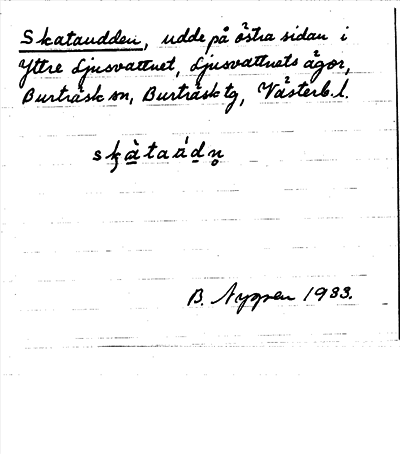 Skataudden, udde på östra sidan i
Yttre Ljusvattnet, Ljusvattnets ägor,
Burträsk sn, Burträsk tg, Västerb. l.
B. Nyppen 1933.